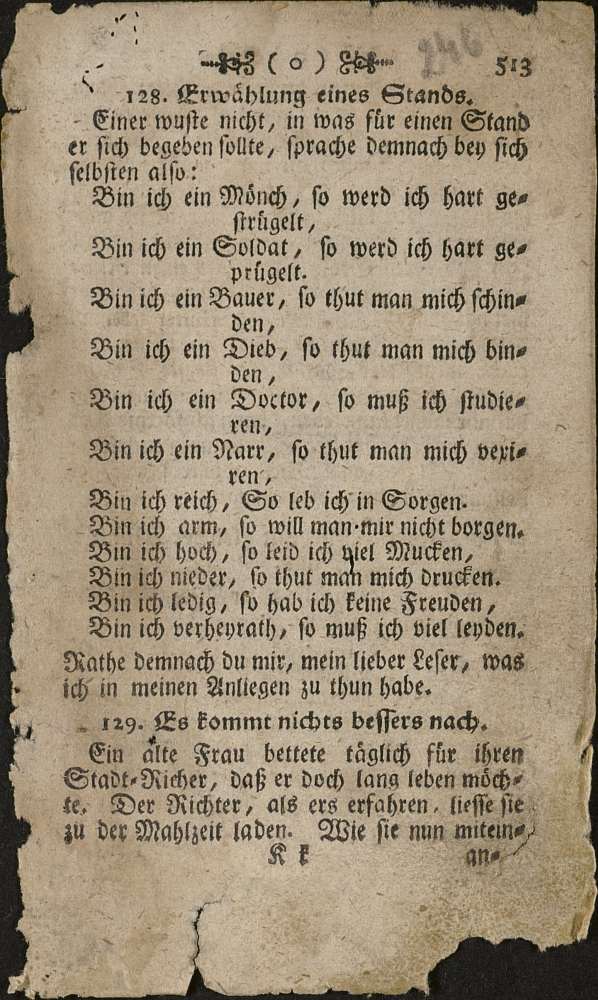 ( o ) 246 513
128. Erwählung eines Stands.
Einer wuste nicht, in was für einen Stand
er sich begeben sollte, sprache demnach bey sich
selbsten also:
Bin ich ein Mönch, so werd ich hart ge-
strügelt,
Bin ich ein Soldat, so werd ich hart ge-
prügelt.
Bin ich ein Bauer, so thut man mich schin-
den,
Bin ich ein Dieb, so thut man mich bin-
den,
Bin ich ein Doctor, so muß ich studie-
ren,
Bin ich ein Narr, so thut man mich vexi-
ren,
Bin ich reich, So leb ich in Sorgen.
Bin ich arm, so will man mir nicht borgen.
Bin ich hoch, so leid ich viel Mucken,
Bin ich nieder, so thut man mich drucken.
Bin ich ledig, so hab ich keine Freuden,
Bin ich verheyrath, so muß ich viel leyden.
Rathe demnach du mir, mein lieber Leser, was
ich in meinen Anliegen zu thun habe.
129. Es kommt nichts bessers nach.
Ein alte Frau bettete täglich für ihren
Stadt-Richer, daß er doch lang leben möch-
te. Der Richter, als ers erfahren, liesse sie
zu der Mahlzeit laden. Wie sie nun mitein-
K k an-